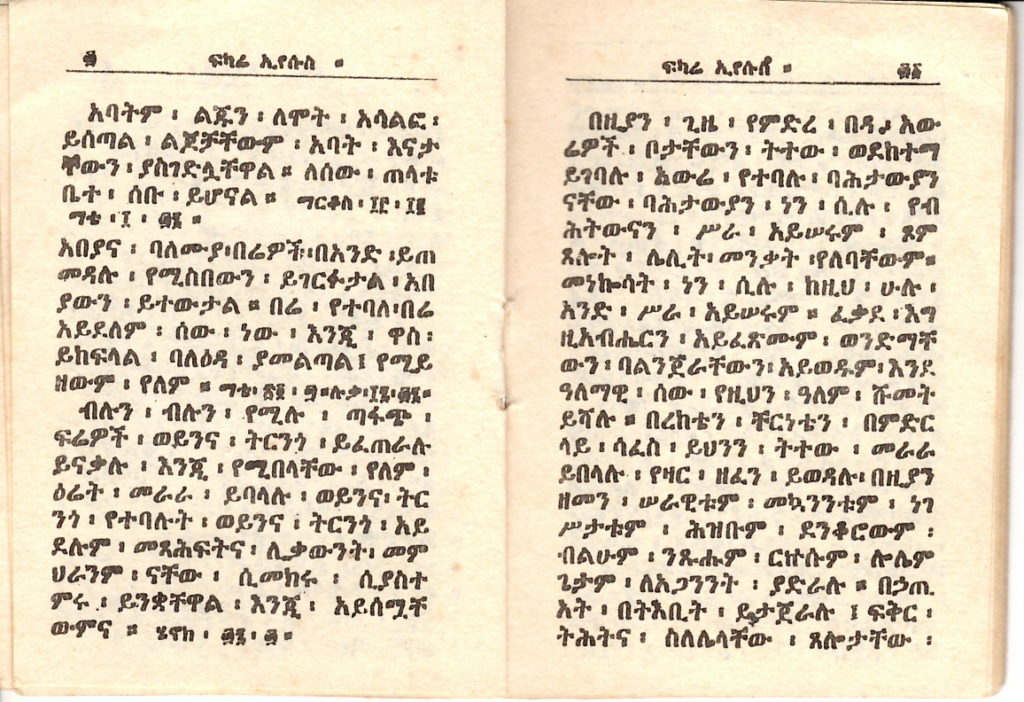 ፰ ፍካሬ ኢየሱስ ።
አባትም ፡ ልጁን ፡ ለሞት ፡ አሳልፎ ፡
ይሰጣል ፡ ልጆቻቸውም ፡ አባት ፡ እናታ
ቸውን ፡ ያስገድሏቸዋል ። ለሰው ፡ ጠላቱ
ቤተ ፡ ሰቡ ፡ ይሆናል ። ማርቆስ ፡ ፲፫ ፡ ፲፪
ማቴ ፡ ፲ ፡ ፴፮ ።
አበያና ፡ ባለሙያ፡በሬዎች፡በአንድ ፡ይጠ
መዳሉ ፡ የሚስበውን ፡ ይገርፉታል ፡ አበ
ያውን ፡ ይተውታል ። በሬ ፡ የተባለ፡በሬ
አይደለም ፡ ሰው ፡ ነው ፡ እንጂ ፡ ዋስ፡
ይከፍላል ፡ ባለዕዳ ፡ ያመልጣል፤ የሚይ
ዘውም ፡ የለም ።
ብሉን ፡ ብሉን ፡ የሚሉ ፡ ጣፋጭ ፡
ፍሬዎች ፡ ወይንና ፡ ትርንጎ ፡ ይፈጠራሉ
ይናቃሉ ፡ እንጂ ፡ የሚበላቸው ፡ የለም ፡
ዕሬት ፡ መራራ ፡ ይባላሉ ፡ ወይንና፡ ትር
ንጎ ፡ የተባሉት ፡ ወይንና ፡ ትርንጎ ፡ አይ
ደሉም ፡ መጻሕፍትና ፡ ሊቃውንት፡ መም
ህራንም ፡ ናቸው ፡ ሲመክሩ ፡ ሲያስተ
ምሩ ፡ ይንቋቸዋል ፡ እንጂ ፡ አይሰሟቸ
ውምና ። ሄኖክ ፡
ፍካሬ ኢየሱስ ።
በዚያን ፡ ጊዜ ፡ የምድረ ፡ በዳ ፡ አው
ሬዎች ፡ ቦታቸውን ፡ ትተው ፡ ወደከተማ
ይገባሉ ፡ አውሬ ፡ የተባሉ ፡ ባሕታውያን
ናቸው ፡ ባሕታውያን ፡ ነን ፡ ሲሉ ፡ የብ
ሕትውናን ፡ ሥራ ፡ አይሠሩም ፡ ጾም
ጸሎት ፡ ሌሊት፡ መንቃት ፡የለባቸውም።
መነኰሳት ፡ ነን ፡ ሲሉ ፡ ከዚህ ፡ ሁሉ ፡
አንድ ፡ ሥራ ፡ አይሠሩም ። ፈቃደ ፡እግ
ዚአብሔርን ፡ አይፈጽሙም ፡ ወንድማቸ
ውን፡ ባልንጀራቸውን፡ አይወዱም፡ እንደ
ዓለማዊ ፡ ሰው ፡ የዚህን ፡ ዓለም ፡ ሹመት
ይሻሉ ። በረከቴን ፡ ቸርነቴን ፡ በምድር
ላይ ፡ ሳፈስ ፡ ይህንን ፡ ትተው ፡ መራራ
ይበላሉ ፡ የዛር ፡ ዘፈን ፡ ይወዳሉ፡ በዚያን
ዘመን ፡ ሠራዊቱም ፡ መኳንንቱም ፡ ነገ
ሥታቱም ፡ ሕዝቡም ፡ ደንቆሮውም ፡
ብልሁም ፡ ንጹሑም ፡ ርኩሱም ፡ ሎሌም
ጌታም ፡ ለአጋንንት ፡ ያድራሉ ። በኃጢ
አት ፡ በትእቢት ፡ ይታጀራሉ ፤ ፍቅር ፡
ትሕትና ፡ ስለሌላቸው ፡ ጸሎታቸው ፡